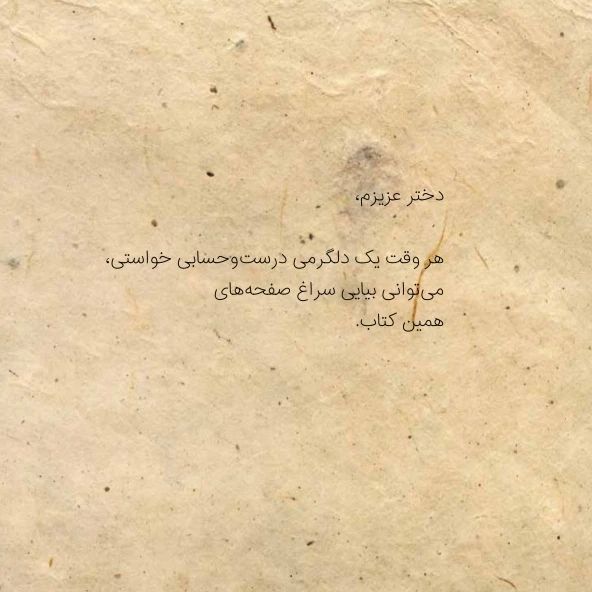 دختر عزیزم،
هر وقت یک دلگرمی درست‌وحسابی خواستی،
می‌توانی بیایی سراغ صفحه‌های
همین کتاب.